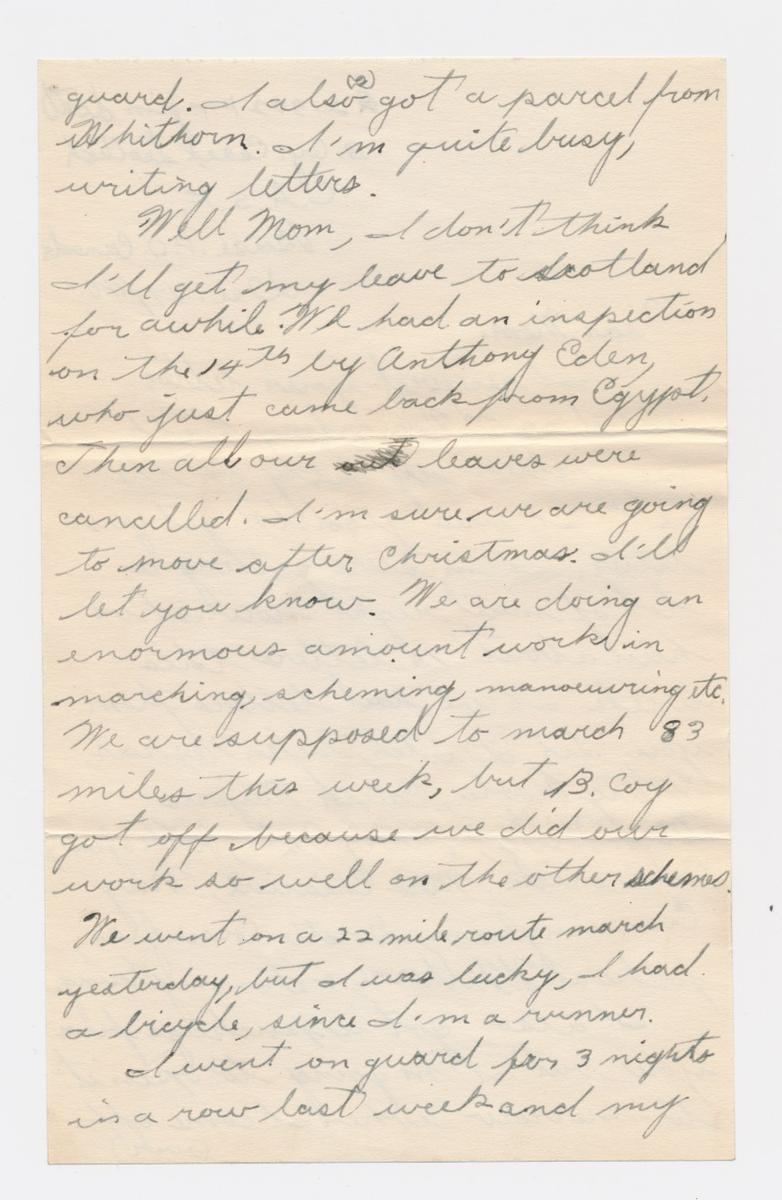 (2)
guard. I also got a parcel from
Whithorn. I'm quite busy,
writing letters.
Well Mom, I don't think
I'll get my leave to Scotland
for awhile. We had an inspection
on the 14th by Anthony Eden,
who just came back from Egypt.
Then all our leaves were
cancelled. I'm sure we are going
to move after Christmas. I'll
let you know. We are doing an
enormous amount work in
marching, scheming, manoeuvring etc.
We are supposed to march 83
miles this week, but B. Coy
got off because we did our
work so well on the other schemes.
We went on a 22 mile route march
yesterday, but I was lucky, I had
a bicycle, since I'm a runner.
I went on guard for 3 nights
in a row last week and my